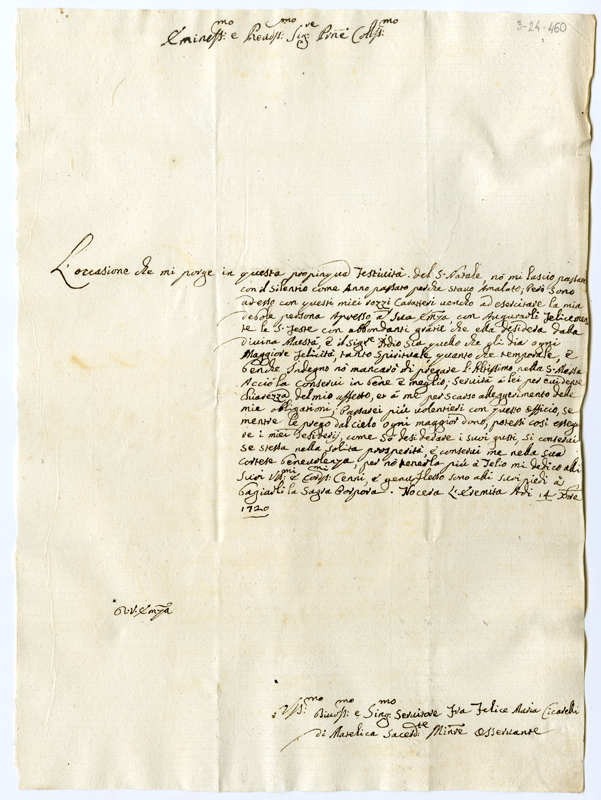 3-24-460
Eminoss:mo e Reuoss:mo Sig:re Prne Coless:mo
L'occasione che mi porge in questa propinqua festiuità del S. Natale nõ mi lascio passare
con il silentio come Anno passato perche stauo Amalato; Però sono
adesso con questi miei rozzi Caratteri uenuto ad esercitare la mia
debole persona Apresso a Sua Emza con Augurarli felicemen
te le S. feste con abbondanti gratie che ella desidera dalla
Diuina Maestà, e il Sigre Iddio sia quello che gli dia ogni
Maggiore felicità tanto Spirituale quanto che temporale, e
benche Indegno nõ mancarò di pregare l'Altissimo nella S. Messa
Acciò la conserui in bene e meglio; Seruirà a lei per euidente
chiarezza del mio affetto, et a me per scarso alleggerimento delle
mie obligationi; Passarei più uolentieri con questo officio, se
mentre le prego dal cielo ogni maggior dono, potessi così essegui
re i miei desiderij, come sò desiderare i suoi gusti, si conserui
se stessa nella solita prosperità, e conserui me nella sua
cortese beneuolenza, per nõ tenerla più à tedio mi dedico alli
suoi cenni, e genuflesso sono alli suoi piedi à
bagiarli la Sagra Porpora. Nocera L'Eremita Adi 14 Xbre
1720
D. V. Emza
Reuoss:mo e Sing:mo Seruitore Fra Felice Maria Cicarelli
di Matelica Sacerdte Minre Osseruante